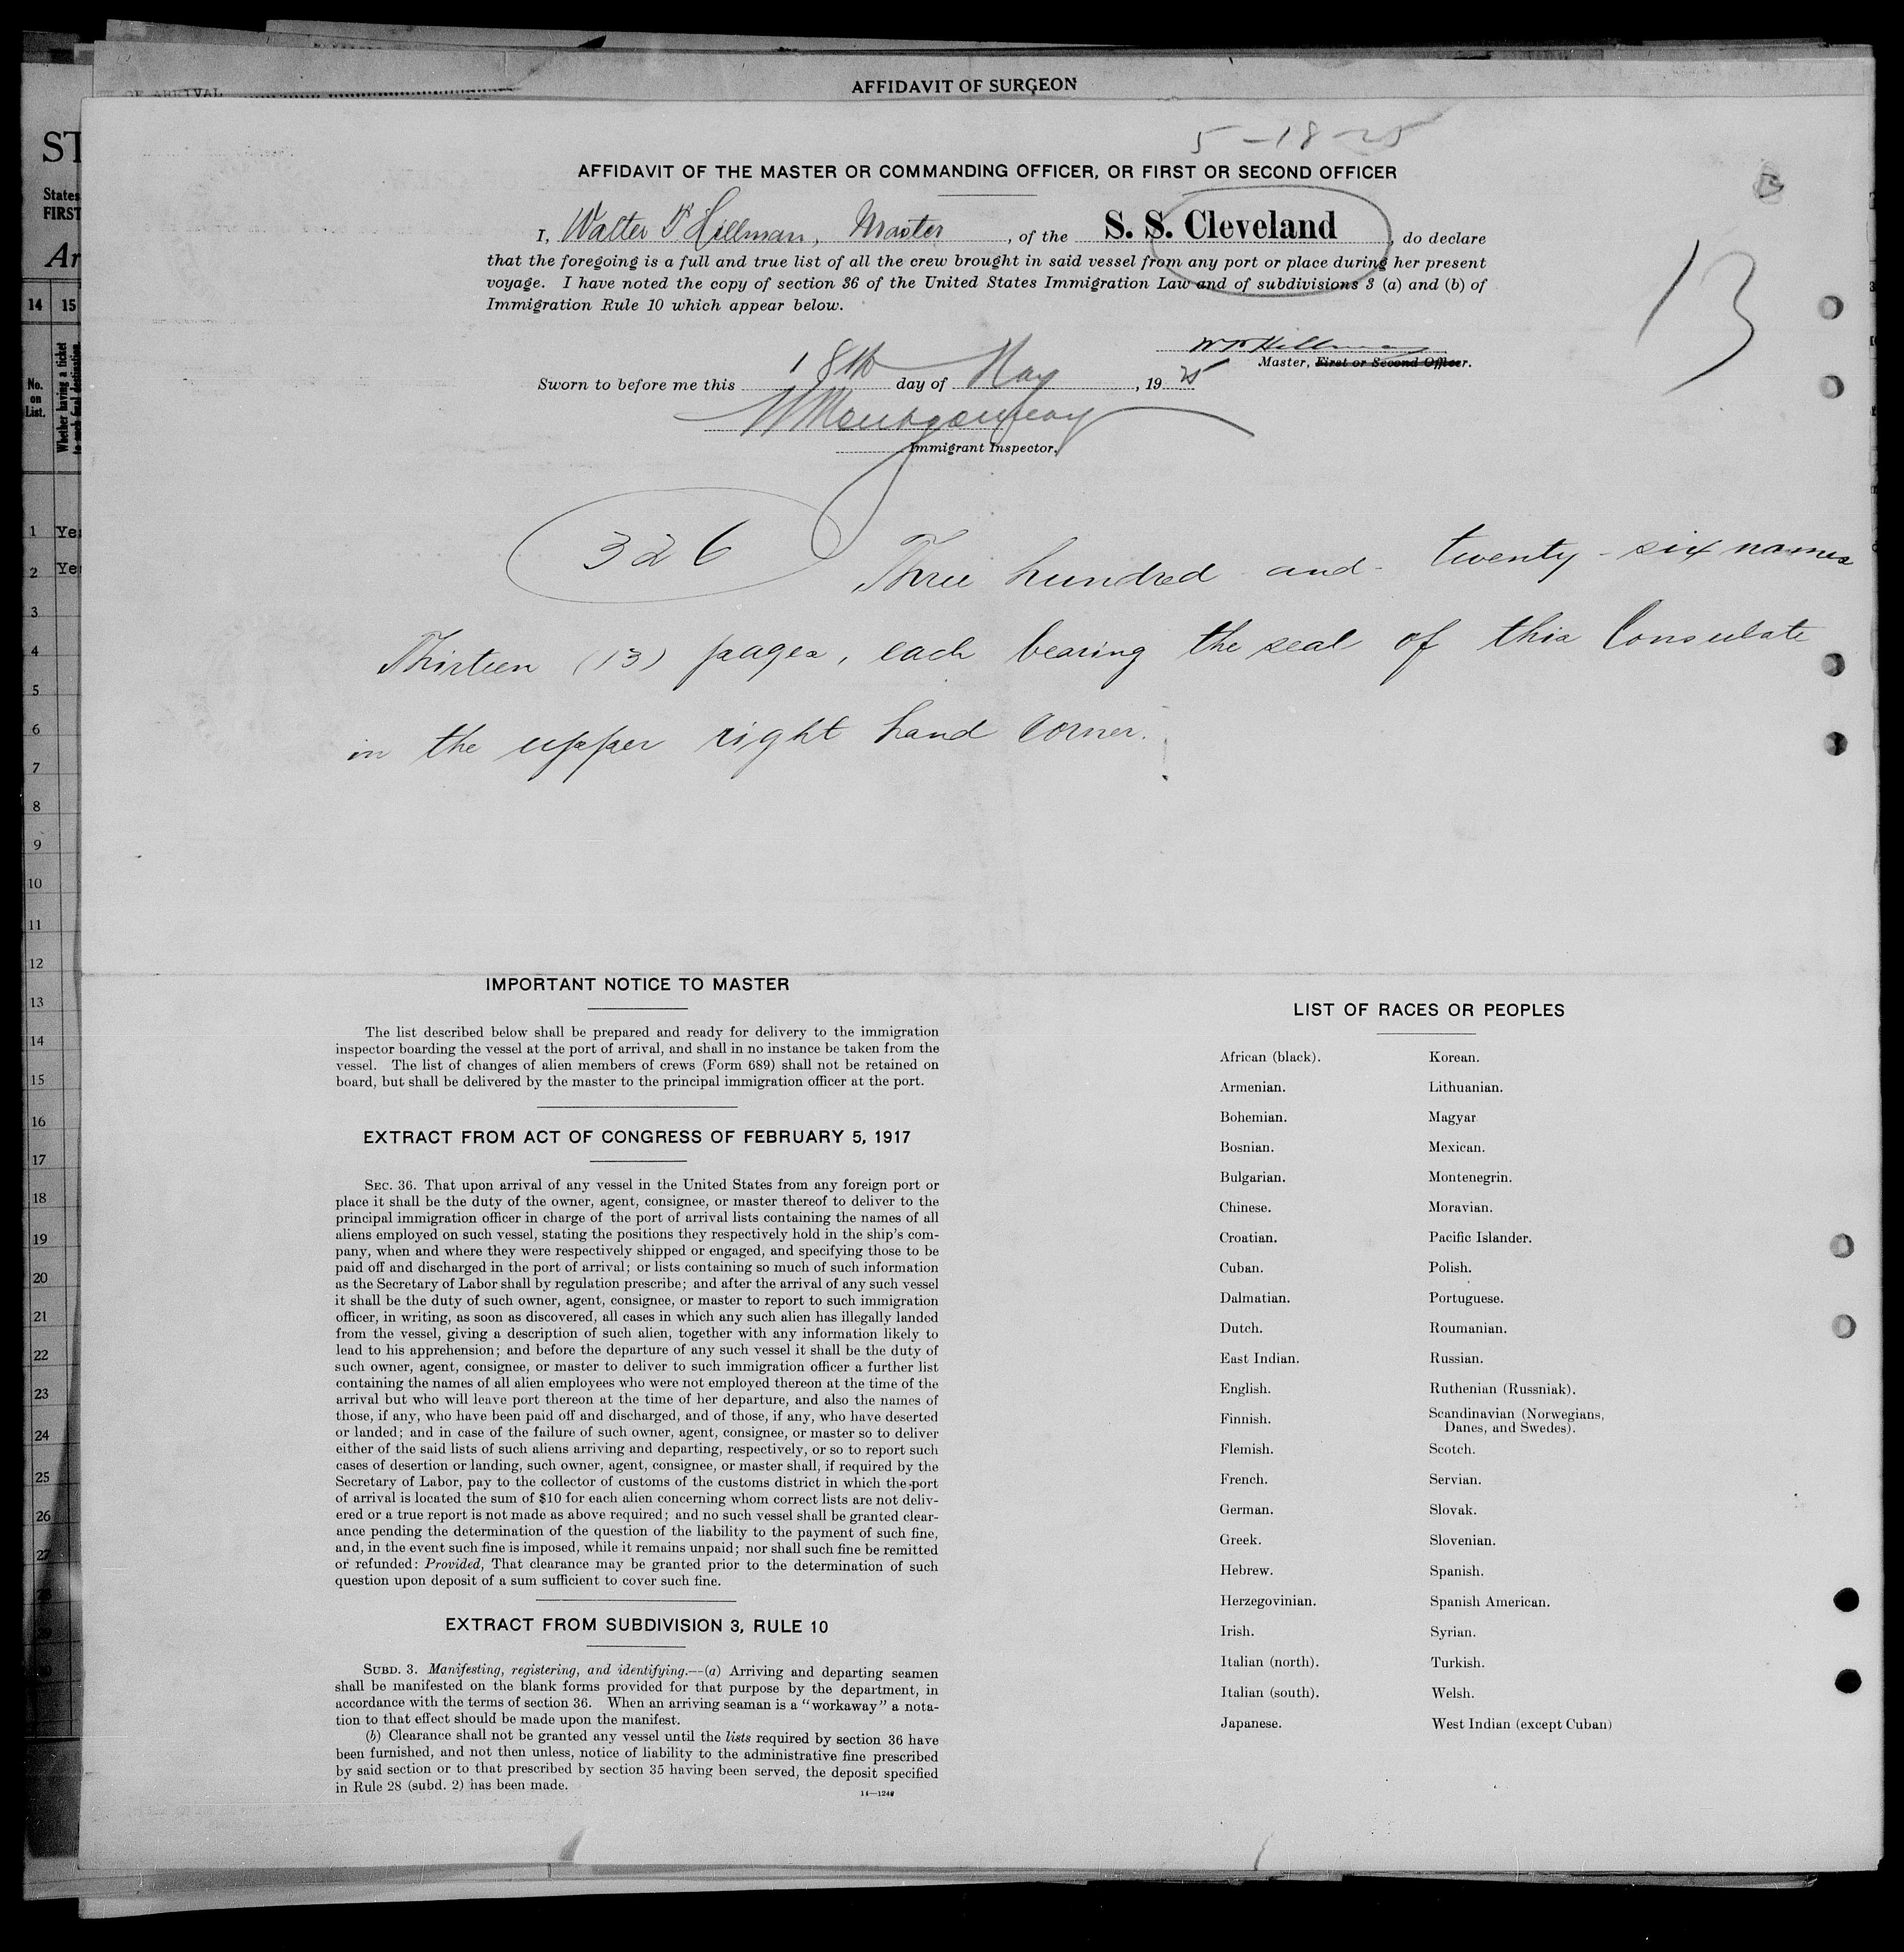 AFFIDAVIT OF SURGEON
OF ARRIVAL
5-18-25
AFFIDAVIT OF THE MASTER OR COMMANDING OFFICER, OR FIRST OR SECOND OFFICER
I, Walter Hillman, Master, of the S. S. Cleveland, do declare
that the foregoing is a full and true list of all the crew brought in said vessel from any port or place during her present
voyage. I have noted the copy of section 36 of the United States Immigration Law and of subdivisions 3 (a) and (b) of
Immigration Rule 10 which appear below.
13
Master, First or Second Officer.
Sworn to before me this 18th day of May, 1925
Montgomery
Immigrant Inspector.
326 Three hundred and twenty-six names
Thirteen (13) pages, each bearing the seal of this Consulate
in the upper right hand corner.
IMPORTANT NOTICE TO MASTER
The list described below shall be prepared and ready for delivery to the immigration
inspector boarding the vessel at the port of arrival, and shall in no instance be taken from the
vessel. The list of changes of alien members of crews (Form 689) shall not be retained on
board, but shall be delivered by the master to the principal immigration officer at the port.
EXTRACT FROM ACT OF CONGRESS OF FEBRUARY 5, 1917
SEC. 36. That upon arrival of any vessel in the United States from any foreign port or
place it shall be the duty of the owner, agent, consignee, or master thereof to deliver to the
principal immigration officer in charge of the port of arrival lists containing the names of all
aliens employed on such vessel, stating the positions they respectively hold in the ship's com-
pany, when and where they were respectively shipped or engaged, and specifying those to be
paid off and discharged in the port of arrival; or lists containing so much of such information
as the Secretary of Labor shall by regulation prescribe; and after the arrival of any such vessel
it shall be the duty of such owner, agent, consignee, or master to report to such immigration
officer, in writing, as soon as discovered, all cases in which any such alien has illegally landed
from the vessel, giving a description of such alien, together with any information likely to
lead to his apprehension; and before the departure of any such vessel it shall be the duty of
such owner, agent, consignee, or master to deliver to such immigration officer a further list
containing the names of all alien employees who were not employed thereon at the time of the
arrival but who will leave port thereon at the time of her departure, and also the names of
those, if any, who have been paid off and discharged, and of those, if any, who have deserted
or landed; and in case of the failure of such owner, agent, consignee, or master so to deliver
either of the said lists of such aliens arriving and departing, respectively, or so to report such
cases of desertion or landing, such owner, agent, consignee, or master shall, if required by the
Secretary of Labor, pay to the collector of customs of the customs district in which the port
of arrival is located the sum of $10 for each alien concerning whom correct lists are not deliv-
ered or a true report is not made as above required; and no such vessel shall be granted clear-
ance pending the determination of the question of the liability to the payment of such fine,
and, in the event such fine is imposed, while it remains unpaid; nor shall such fine be remitted
or refunded: Provided, That clearance may be granted prior to the determination of such
question upon deposit of a sum sufficient to cover such fine.
EXTRACT FROM SUBDIVISION 3, RULE 10
SUBD. 3. Manifesting, registering, and identifying.—(a) Arriving and departing seamen
shall be manifested on the blank forms provided for that purpose by the department, in
accordance with the terms of section 36. When an arriving seaman is a "workaway" a nota-
tion to that effect should be made upon the manifest.
(b) Clearance shall not be granted any vessel until the lists required by section 36 have
been furnished, and not then unless, notice of liability to the administrative fine prescribed
by said section or to that prescribed by section 35 having been served, the deposit specified
in Rule 28 (subd. 2) has been made.
14—1240
LIST OF RACES OR PEOPLES
African (black).
Armenian.
Bohemian.
Bosnian.
Bulgarian.
Chinese.
Croatian.
Cuban.
Dalmatian.
Dutch.
East Indian.
English.
Finnish.
Flemish.
French.
German.
Greek.
Hebrew.
Herzegovinian.
Irish.
Italian (north).
Italian (south).
Japanese.
Korean.
Lithuanian.
Magyar
Mexican.
Montenegrin.
Moravian.
Pacific Islander.
Polish.
Portuguese.
Roumanian.
Russian.
Ruthenian (Russniak).
Scandinavian (Norwegians,
Danes, and Swedes).
Scotch.
Servian.
Slovak.
Slovenian.
Spanish.
Spanish American.
Syrian.
Turkish.
Welsh.
West Indian (except Cuban)
ST
States
FIRST
Ar
14 15
No.
on
List.
Whether having a ticket
to such final destination
1 Yes
2 Yes
3
4
5
6
7
8
9
10
11
12
13
14
15
16
17
18
19
20
21
22
23
24
25
26
27
28